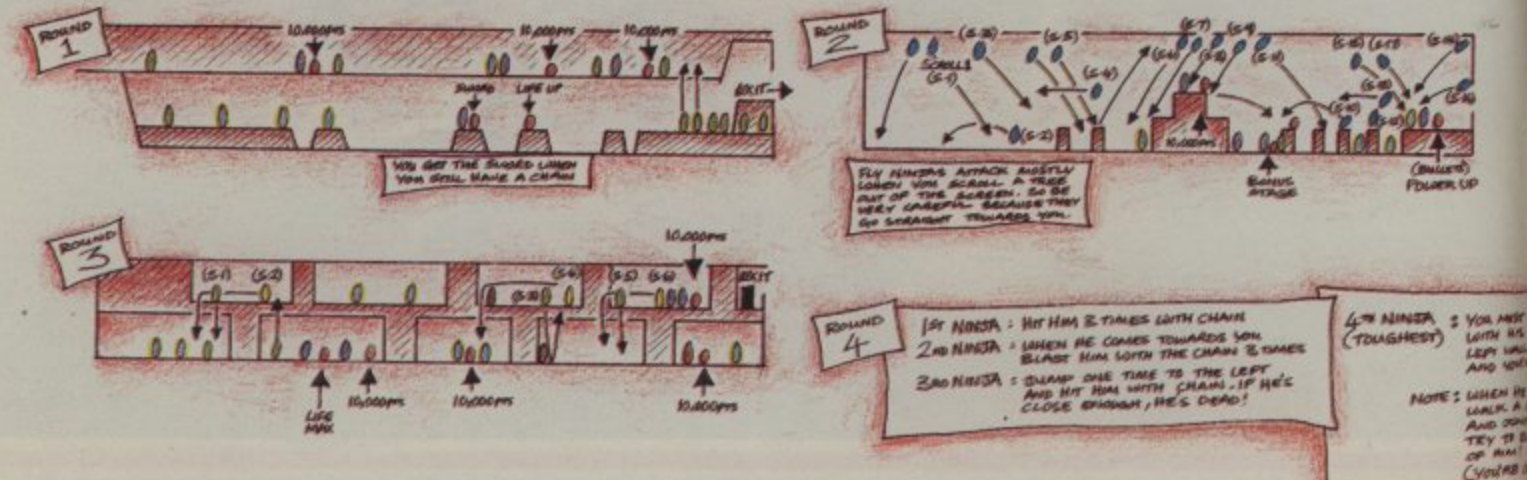 ROUND
1
10,000PTS
10,000PTS
10,000PTS
SWORD
LIFE UP
EXIT
YOU GET THE SWORD WHEN
YOU STILL HAVE A CHAIN
ROUND
2
(S-3)
(S-5)
(S-7)
(S-9)
SCROLL 1
(S-1)
(S-4)
(S-6)
(S-8)
(S-11)
(S-2)
10,000PTS
BONUS
STAGE
(BULLETS)
POWER UP
FLY NINJAS ATTACK MOSTLY
WHEN YOU SCROLL A TREE
OUT OF THE SCREEN. SO BE
VERY CAREFUL BECAUSE THEY
GO STRAIGHT TOWARDS YOU.
ROUND
3
10,000PTS
(S-1)
(S-2)
(S-3)
(S-4)
(S-5)
(S-6)
EXIT
LIFE
MAX
10,000PTS
10,000PTS
10,000PTS
ROUND
4
1ST NINJA : HIT HIM 3 TIMES WITH CHAIN
2ND NINJA : WHEN HE COMES TOWARDS YOU
BLAST HIM WITH THE CHAIN 3 TIMES
3RD NINJA : JUMP ONE TIME TO THE LEFT
AND HIT HIM WITH CHAIN. IF HE'S
CLOSE ENOUGH, HE'S DEAD!
4TH NINJA : YOU MUST
(TOUGHEST) WITH HIS
LEFT WALL
AND YOU
NOTE : WHEN HE
WALK A
AND
TRY TO
OF HIM!
(YOU'RE